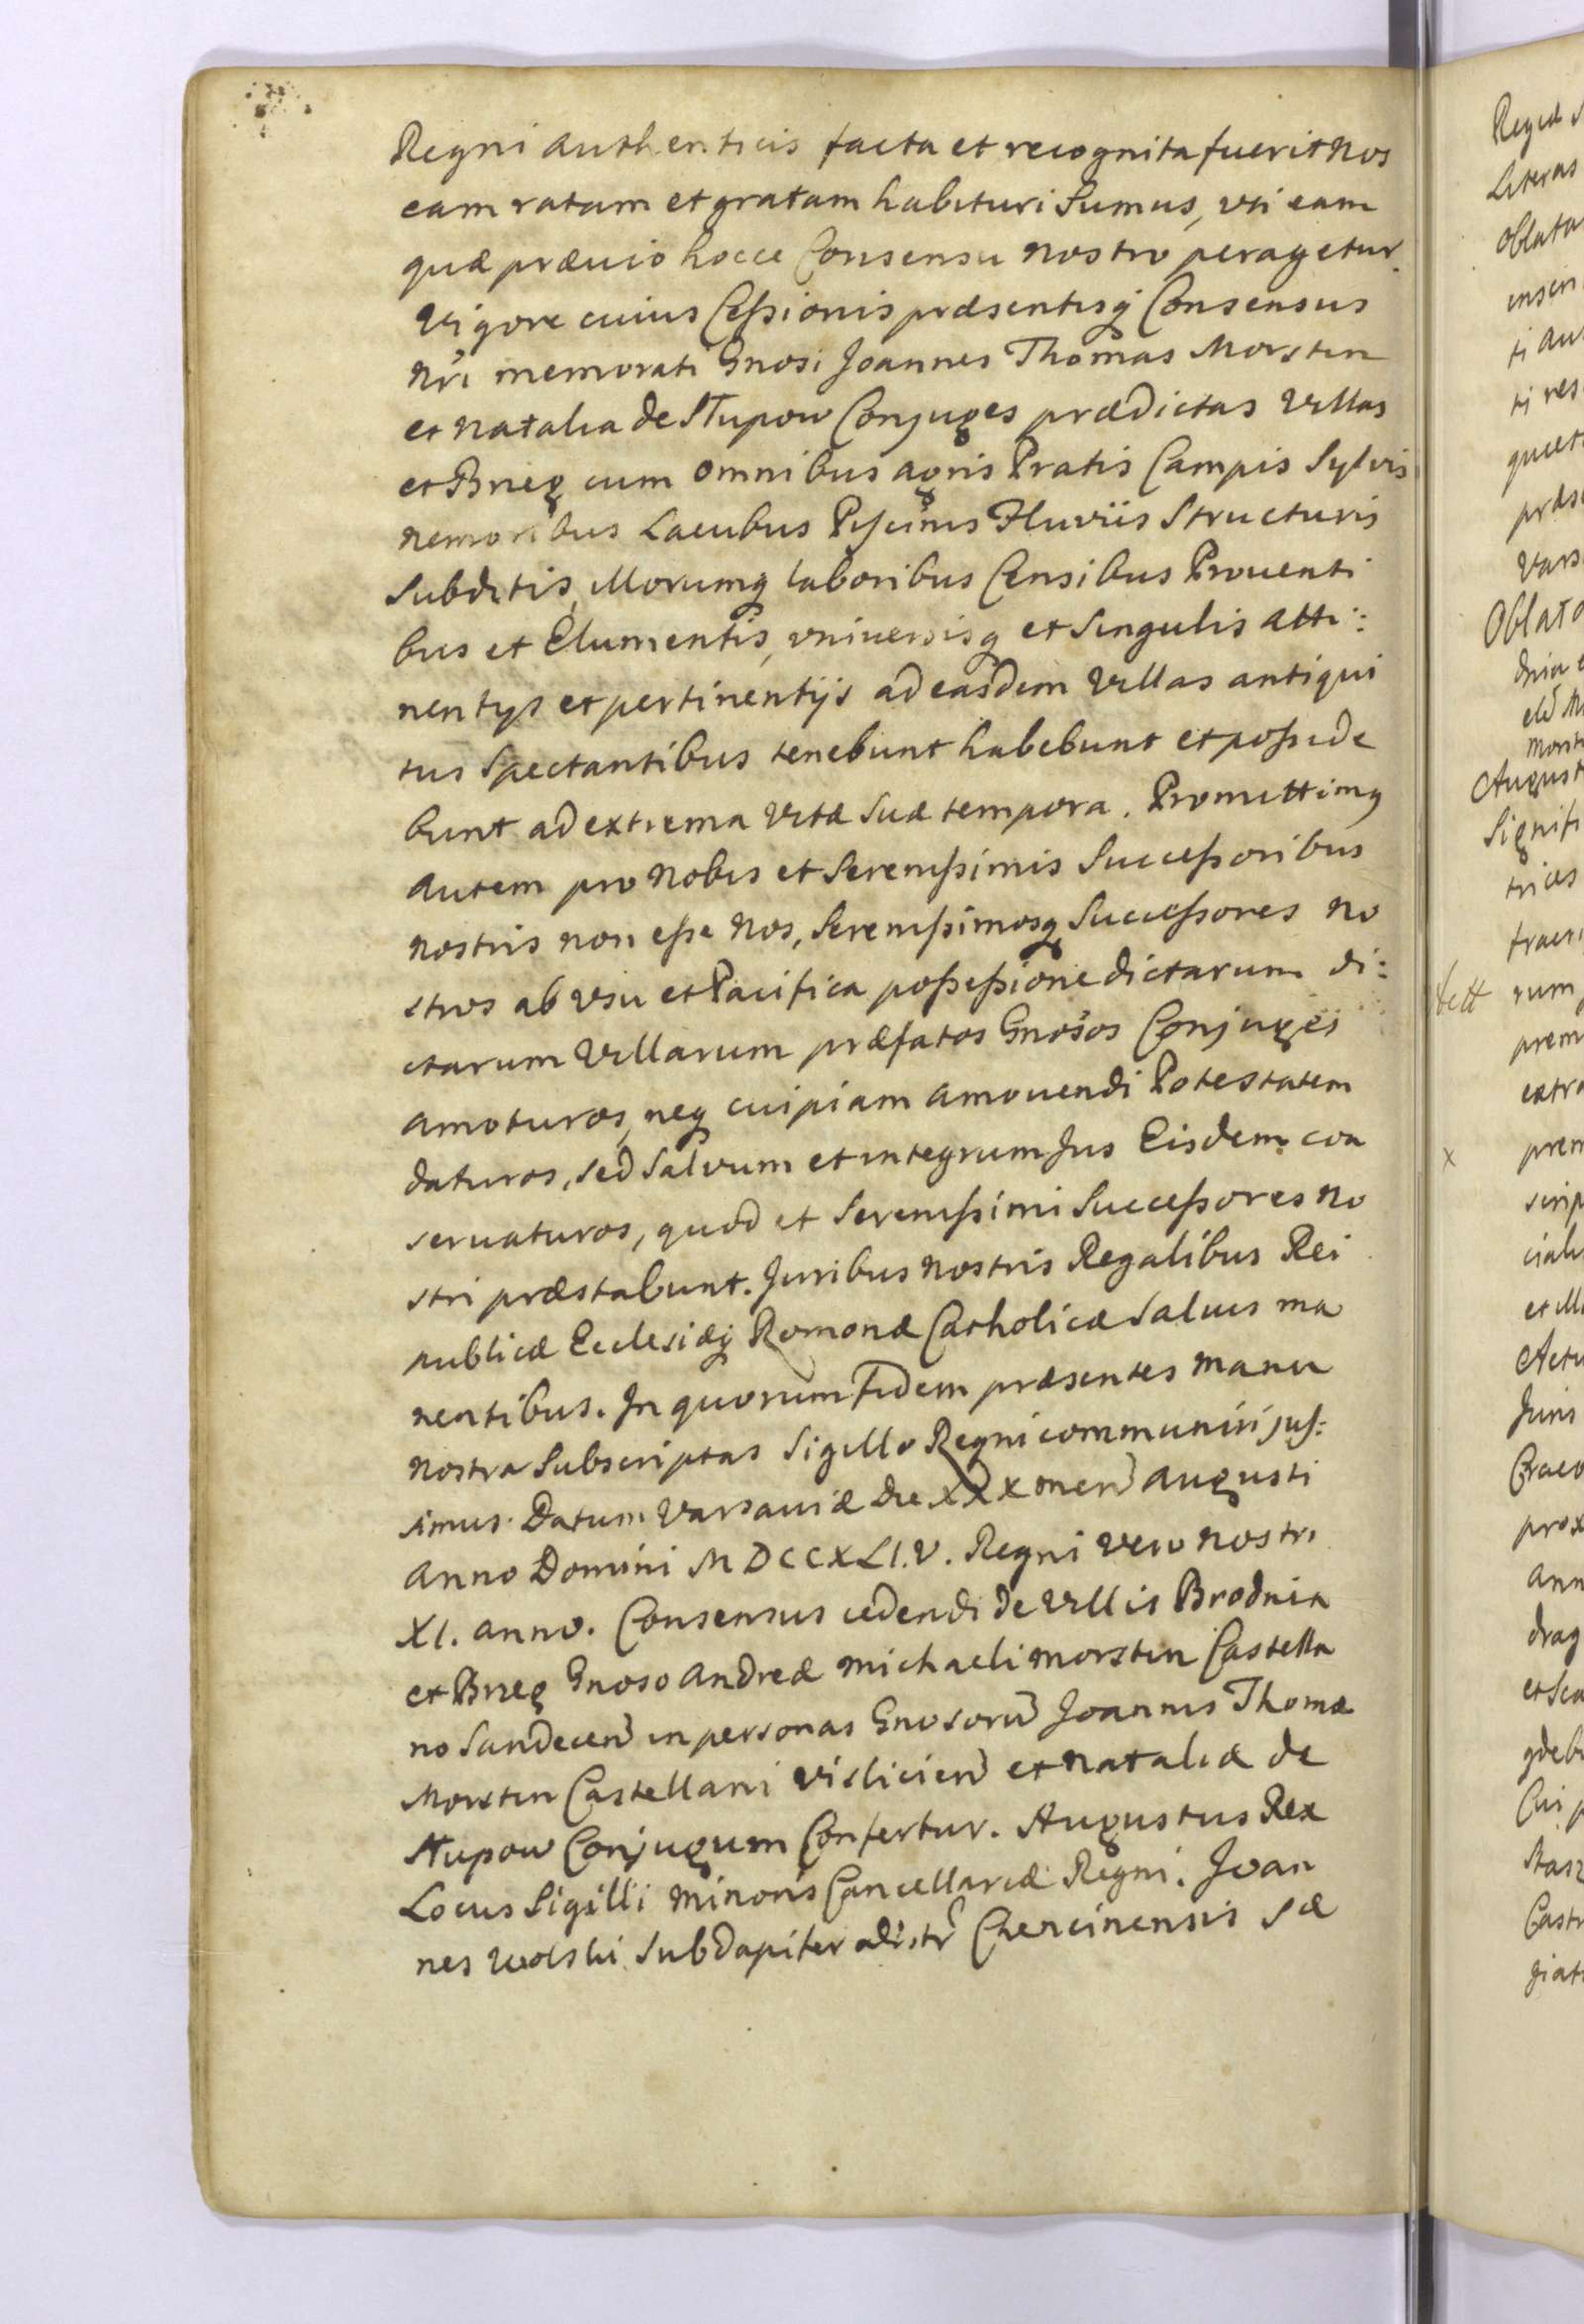 Regni authenticis facta et recognita fuerit nos
eam ratam et gratam habituri Sumus, uti eam
quæ præuio hocce Consensu nostro peragetur.
Vigore cuius Cessionis præsentisq Consensus
Nri memorati Gnosi Joannes Thomas Morstin
et Natalia de Słupow Conjuges prædictas Villas
et Brzeg cum omnibus agris Pratis Campis Sylvis
nemoribus Lacubus Piscinis Fluviis Structuris
Subditis, illorumq laboribus Censibus Prouenti
bus et Elumentis, vniuersisq et Singulis atti:
nentys et pertinentijs ad easdem Villas antiqui
tus Spectantibus tenebunt habebunt et posside
bunt ad extrema Vitæ Suæ tempora. Promittimq
autem pro Nobis et Serenissimis Successoribus
nostris non esse Nos, Serenissimosq Successores no
stros ab vsu et Pacifica possessione dictarum di:
ctarum Villarum præfatos Gnosos Conjuges
amoturos, neq cuipiam amouendi Potestatem
daturos, sed Salvum et integrum Jus Eisdem con
seruaturos, quod et Serenissimi Successores no
stri præstabunt. Juribus nostris Regalibus Rei
publicæ Ecclesiæq Romanæ Catholicæ Saluis ma
nentibus. In quorum Fidem præsentes manu
nostra Subscriptas Sigillo Regni communiri jus:
simus. Datum Varsauiæ die XXX men augusti
Anno Domini MDCCXLI.V. Regni Vero Nostri
XI. anno. Consensus cedendi de Villis Brodnia
et Brzeg Gnoso Andreæ Michaeli Morstin Castella
no Sandecen in personas Gnosoru Joannis Thomæ
Morstin Castellani Vislicien et Nataliæ de
Słupow Conjugum Confertur. Augustus Rex
Locus Sigilli minoris Cancellariæ Regni. Joan
nes Wolski Subdapiter distr Chencinensis Sæ